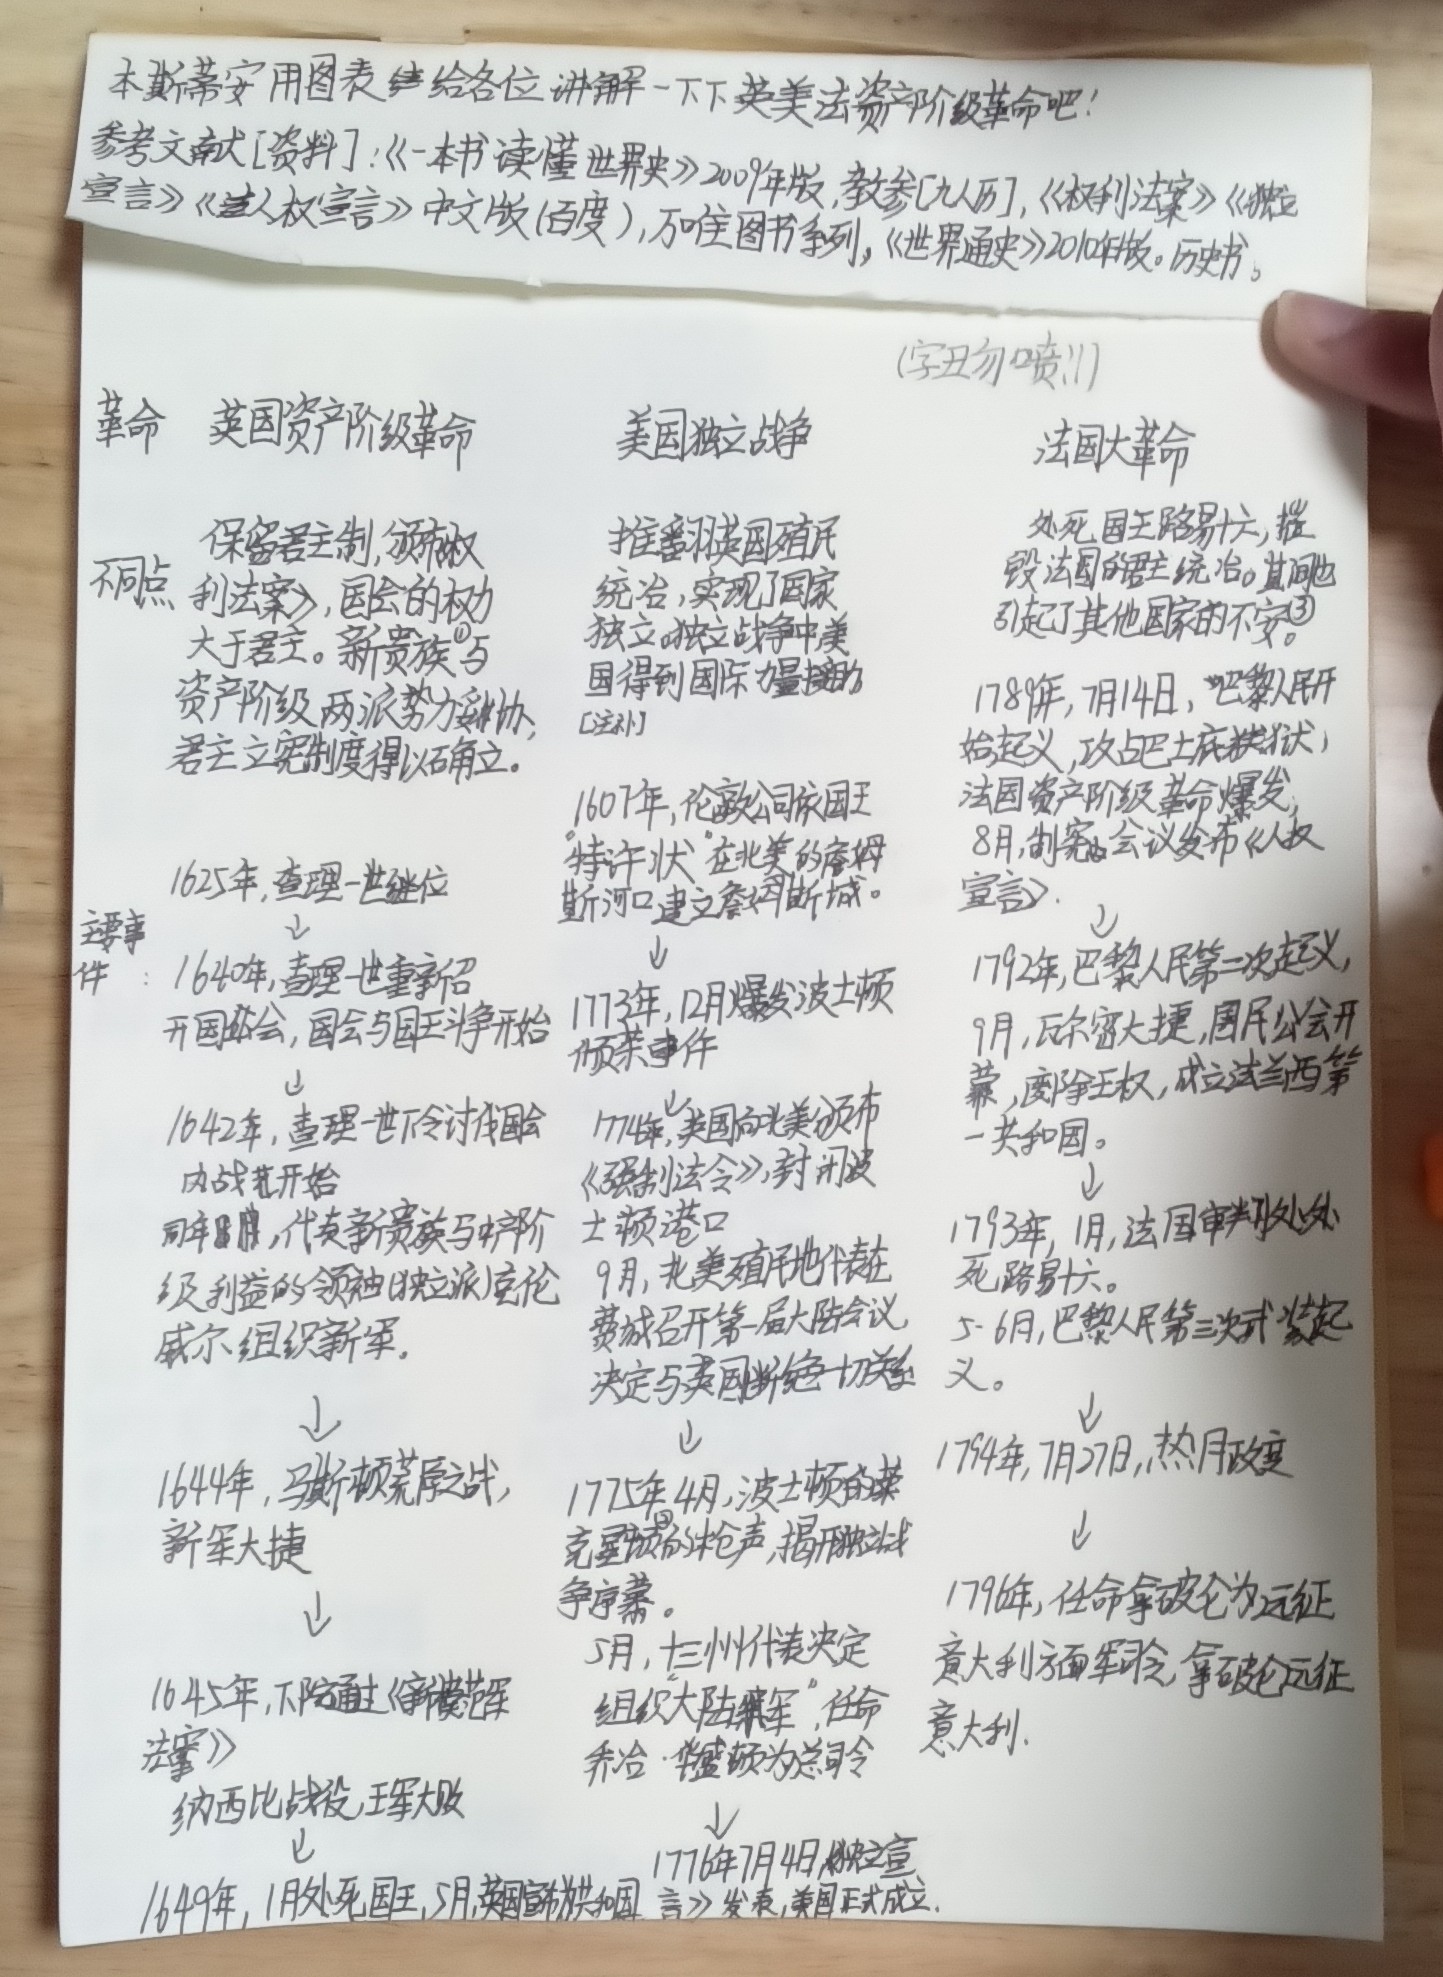 本斯蒂安用图表给各位讲解一下下英美法资产阶级革命吧！
参考文献[资料]：《一本书读懂世界史》2009年版，教参[九人历]，《权利法案》《独立
宣言》《人权宣言》中文版(百度)，万唯图书系列，《世界通史》2010年版。历史书。
(字丑勿喷!!)
革命 英国资产阶级革命 美国独立战争 法国大革命
不同点
保留君主制，颁布权
利法案》，国会的权力
大于君主。新贵族①与
资产阶级两派势力妥协，
君主立宪制度得以确立。
推翻英国殖民
统治，实现了国家
独立。独立战争中美
国得到国际力量援助
[注补]
处死国王路易十六，摧
毁法国的君主统治。其间也
引起了其他国家的不安③。
主要事
件：
1625年，查理一世继位
↓
1640年，查理一世重新召
开国会，国会与国王斗争开始
↓
1642年，查理一世下令讨伐国会
内战开始
同年8月，代表新贵族与中产阶
级利益的领袖(独立派)克伦
威尔组织新军.
↓
1644年，马斯顿荒原之战，
新军大捷
↓
1645年，下院通过《新模范军
法案》
纳西比战役，王军大败
↓
1649年，1月处死国王，5月，英国宣布为共和国
1607年，伦敦公司依国王
“特许状”在北美的詹姆
斯河口建立詹姆斯城。
↓
1773年，12月爆发波士顿
倾茶事件
↓
1774年，英国向北美颁布
《强制法令》，封闭波
士顿港口
9月，北美殖民地代表在
费城召开第一届大陆会议，
决定与英国断绝一切关系
↓
1775年4月，波士顿的莱
克星顿②的枪声，揭开独立战
争序幕。
5月，十三州代表决定
组织“大陆军”，任命
乔治·华盛顿为总司令
↓
1776年7月4日，《独立宣
言》发表，美国正式成立.
1789年，7月14日，巴黎人民开
始起义，攻占巴士底狱，
法国资产阶级革命爆发，
8月，制宪会议发布《人权
宣言》.
↓
1792年，巴黎人民第二次起义，
9月，瓦尔密大捷，国民公会开
幕，废除王权，成立法兰西第
一共和国。
↓
1793年，1月，法国审判处处
死路易十六。
5-6月，巴黎人民第三次武装起
义。
↓
1794年，7月27日，热月政变
↓
1796年，任命拿破仑为远征
意大利方面军司令，拿破仑远征
意大利.